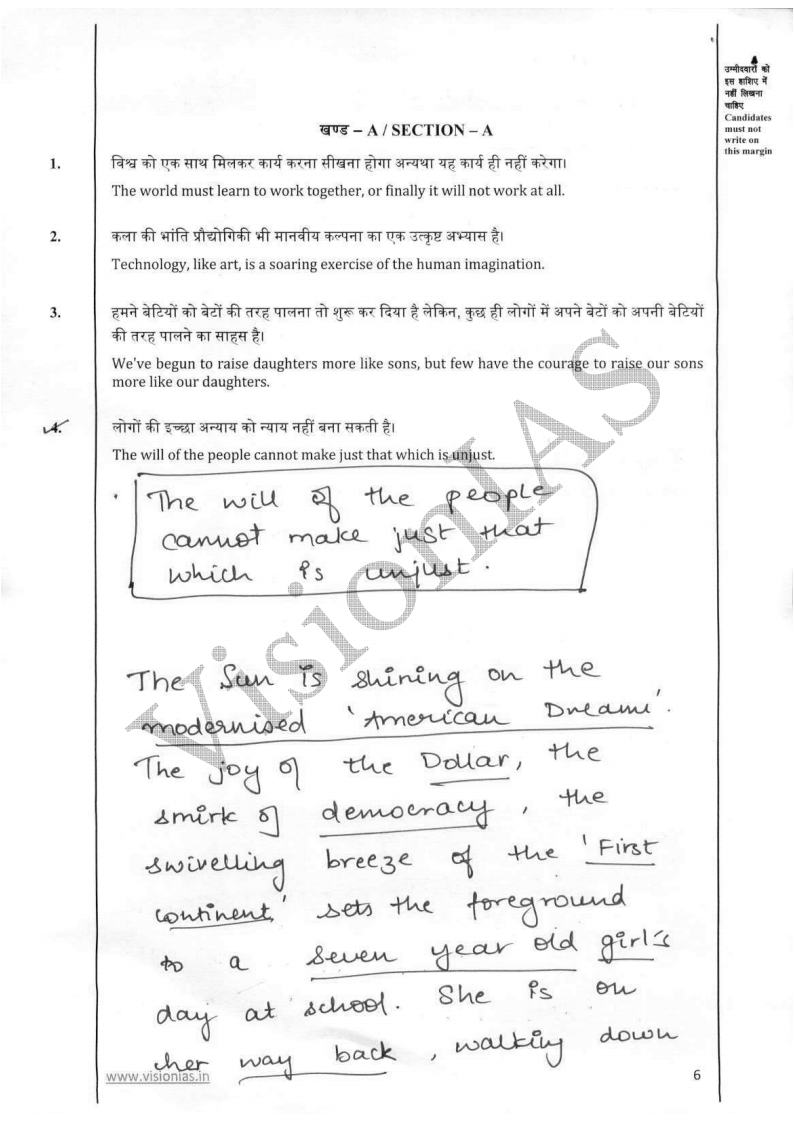 उम्मीदवारों को
इस हाशिए में
नहीं लिखना
चाहिए
Candidates
must not
write on
this margin
खण्ड – A / SECTION – A
1. विश्व को एक साथ मिलकर कार्य करना सीखना होगा अन्यथा यह कार्य ही नहीं करेगा।
The world must learn to work together, or finally it will not work at all.
2. कला की भांति प्रौद्योगिकी भी मानवीय कल्पना का एक उत्कृष्ट अभ्यास है।
Technology, like art, is a soaring exercise of the human imagination.
3. हमने बेटियों को बेटों की तरह पालना तो शुरू कर दिया है लेकिन, कुछ ही लोगों में अपने बेटों को अपनी बेटियों
की तरह पालने का साहस है।
We've begun to raise daughters more like sons, but few have the courage to raise our sons
more like our daughters.
4. लोगों की इच्छा अन्याय को न्याय नहीं बना सकती है।
The will of the people cannot make just that which is unjust.
The will of the people
cannot make just that
which is unjust.
The Sun is shining on the
modernised 'American Dream'.
The joy of the Dollar, the
smirk of democracy, the
swivelling breeze of the 'First
continent' sets the foreground
to a seven year old girl's
day at school. She is on
her way back, walking down
www.visionias.in
6
VisionIAS